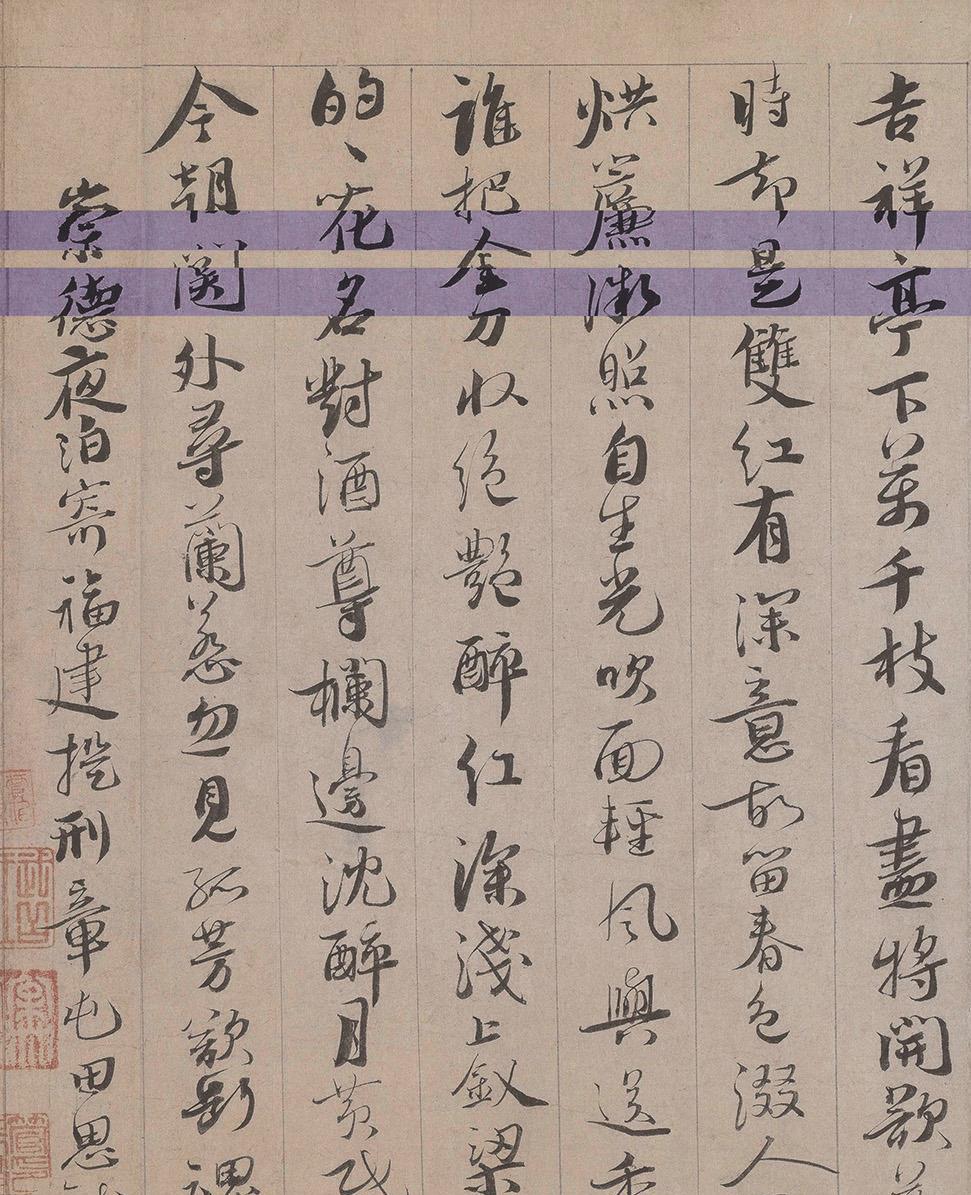 吉祥亭下萬千枝看盡將開欲
時却是雙紅有深意故留春色綴人
烘簾微照自生光吹面輕風與送
誰把金刀收絕艷醉紅深淺上釵梁
的、花名對酒尊欄邊沈醉月黃
今朝關外尋蘭蕙忽見孤芳欲斷魂
崇德夜泊寄福建提刑章屯田思